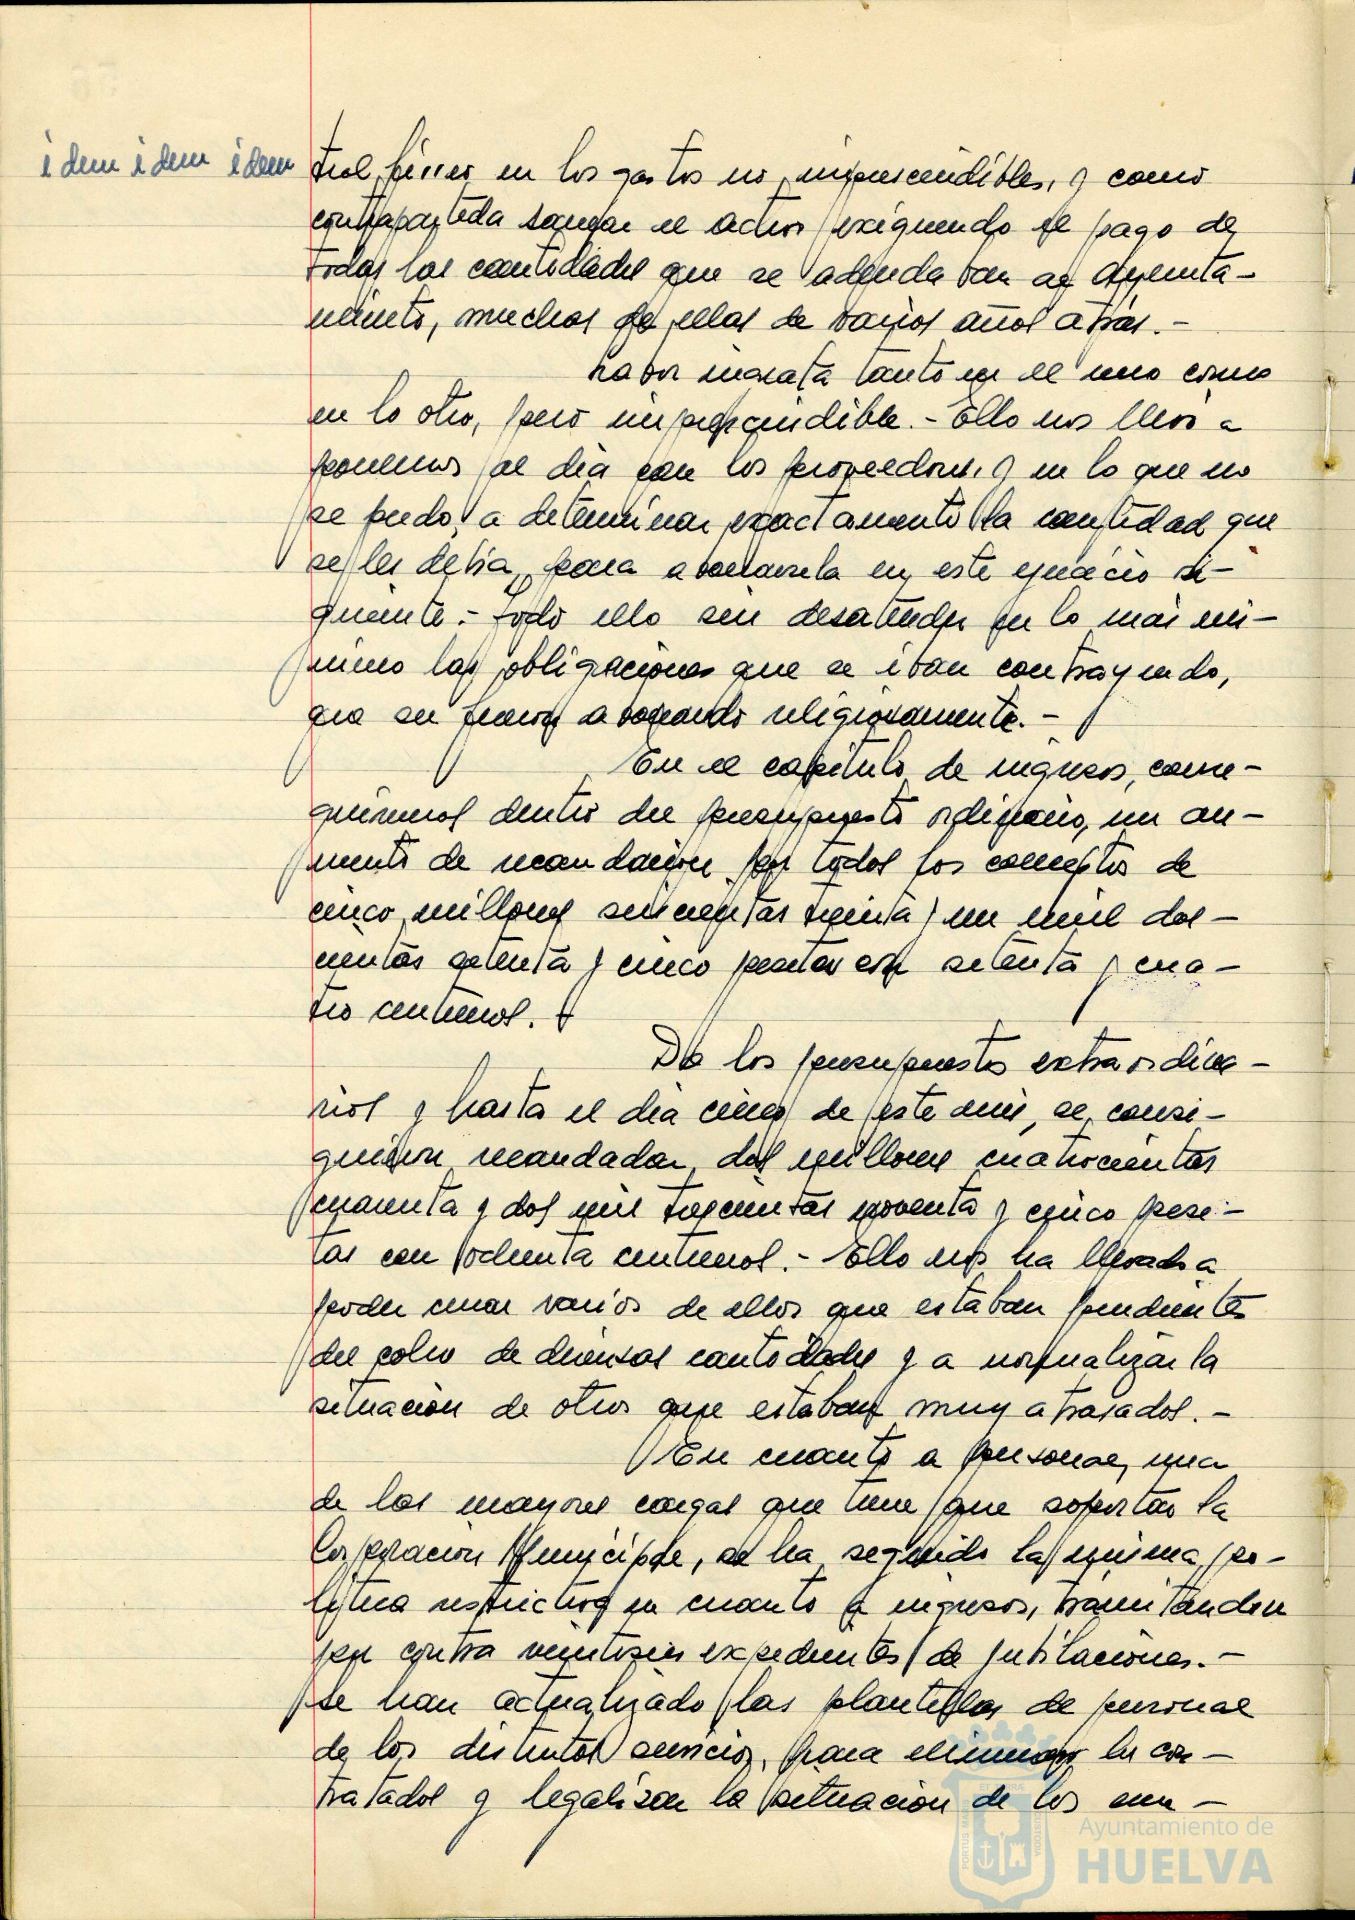 idem idem idem
trol férreo en los gastos no imprescindibles, y como
contrapartida sanear el activo exigiendo el pago de
todas las cantidades que se adeudaban al Ayunta-
miento, muchas de ellas de varios años atrás.-
Labor ingrata tanto en el uno como
en lo otro, pero imprescindible.- Ello nos llevó a
ponernos al día con los proveedores, y en lo que no
se pudo, a determinar exactamente la cantidad que
se les debía, para abonarsela en este ejercicio si-
guiente.- Todo ello sin desatender en lo más mi-
nimo las obligaciones que se iban contrayendo,
que se fueron abonando religiosamente.-
En el capítulo de ingresos, conse-
guimos dentro del presupuesto ordinario, un au-
mento de recaudación por todos los conceptos de
cinco millones seiscientas treinta y un mil dos-
cientas setenta y cinco pesetas con setenta y cua-
tro centimos.-
De los presupuestos extraordina-
rios y hasta el día cinco de este mes, se consi-
guieron recaudar, dos millones cuatrocientas
cuarenta y dos mil trescientas noventa y cinco pese-
tas con ochenta centimos.- Ello nos ha llevado a
poder cerrar varios de ellos que estaban pendientes
del cobro de diversas cantidades y a normalizar la
situación de otros que estaban muy atrasados.-
En cuanto a personal, una
de las mayores cargas que tiene que soportar la
Corporación Municipal, se ha seguido la misma po-
lítica restrictiva en cuanto a ingresos, tramitandose
por contra veintiseis expedientes de jubilaciones.-
Se han actualizado las plantillas de personal
de los distintos servicios, para eliminar los con-
tratados y legalizar la situación de los mu-
Ayuntamiento de
HUELVA